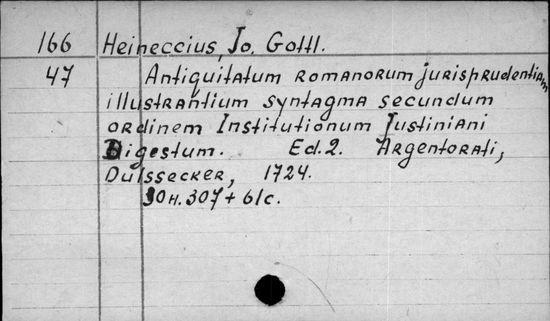 166 Heineccius, Jo. Gottl.
47 Antiquitatum romanorum jurisprudentiam
illustrantium syntagma secundum
ordinem Institutionum Justiniani
Digestum. Ed. 2. Argentorati,
Dulssecker, 1724.
30н. 307 + 61с.